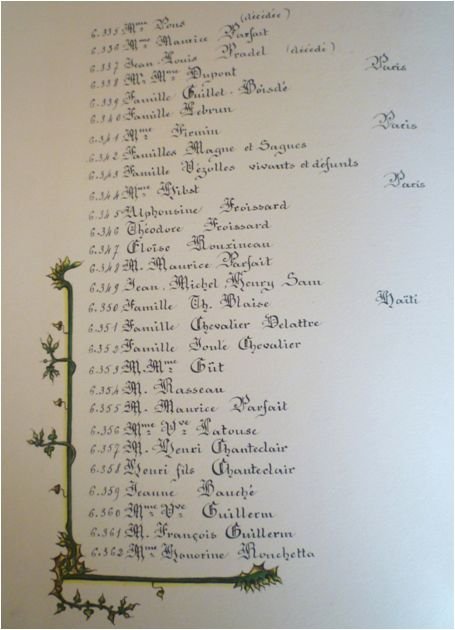 6.335 Mme Pons (décédée)
6.336 Mme Maurice Parfait
6.337 Jean-Louis Pradel (décédé)
6.338 Mr Mme Dupont Paris
6.339 Famille Guillet-Boisdé
6.340 Famille Lebrun
6.341 Mme Firmin Paris
6.342 Familles Magne et Sagues
6.343 Famille Vézolles vivants et défunts
6.344 Mme Paris
6.345 Alphonsine Froissard
6.346 Théodore Froissard
6.347 Éloïse Rouxineau
6.348 M. Maurice Parfait
6.349 Jean-Michel Henry Sam
6.350 Famille Th. Blaise Haïti
6.351 Famille Chevalier Delattre
6.352 Famille Joule Chevalier
6.353 M. Mme Güt
6.354 M. Rasseau
6.355 M. Maurice Parfait
6.356 Mme Vve Latouse
6.357 M. Henri Chanteclair
6.358 Henri fils Chanteclair
6.359 Jeanne Bauché
6.360 Mme Vve Guillerm
6.361 M. François Guillerm
6.362 Mme Honorine Ronchetta